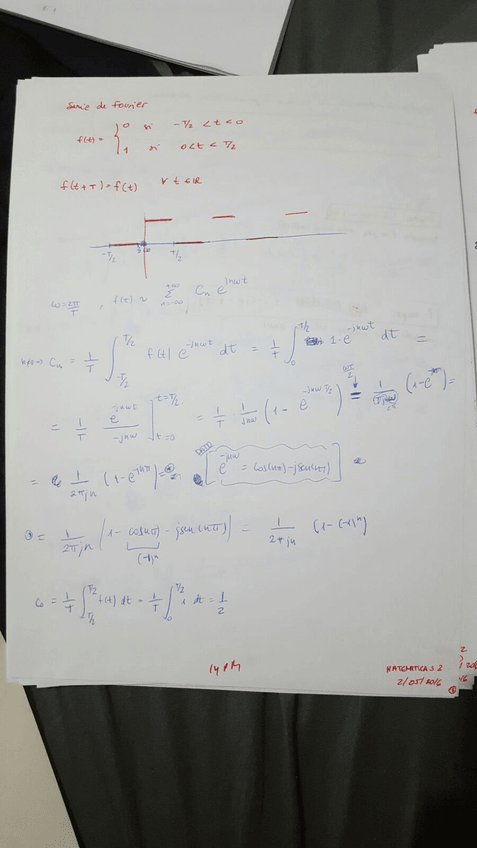 Serie de Fourier
f(t) = { 0 si -T/2 < t < 0
1 si 0 < t < T/2
f(t+T) = f(t) ∀ t ∈ ℝ
-T/2 T/2
ω = 2π/T , f(t) ~ ∑_{n=-∞}^{+∞} C_n e^{jnωt}
C_n = 1/T ∫_{-T/2}^{T/2} f(t) e^{-jnωt} dt = 1/T ∫_0^{T/2} 1·e^{-jnωt} dt =
= 1/T e^{-jnωt}/(-jnω) ]_{t=0}^{t=T/2} = 1/T · 1/(jnω) (1 - e^{-jnωT/2}) =
= 1/(2πjn) (1 - e^{-jnπ}) = [ = cos(nπ) - jsen(nπ) ]
= 1/(2πjn) (1 - cos(nπ) - jsen(nπ)) = 1/(2πjn) (1 - (-1)^n)
(-1)^n
C_0 = 1/T ∫_{-T/2}^{T/2} f(t) dt = 1/T ∫_0^{T/2} 1 dt = 1/2
MATEMATICAS 2
2/05/2016